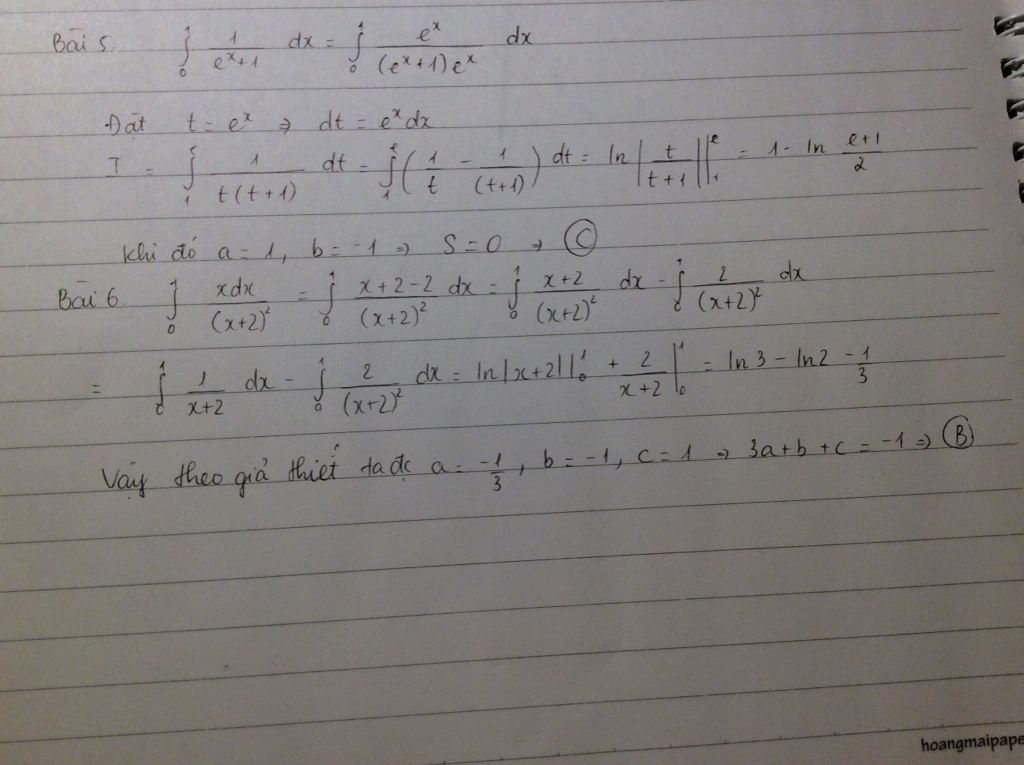 Bài 5. ∫₀¹ 1/(eˣ+1) dx = ∫₀¹ eˣ/((eˣ+1)eˣ) dx
Đặt t = eˣ ⇒ dt = eˣdx
I = ∫₁ᵉ 1/(t(t+1)) dt = ∫₁ᵉ (1/t - 1/(t+1)) dt = ln|t/(t+1)||₁ᵉ = 1 - ln (e+1)/2
Khi đó a = 1, b = -1 ⇒ S = 0 ⇒ Ⓒ
Bài 6. ∫₀¹ xdx/(x+2)² = ∫₀¹ (x+2-2)/(x+2)² dx = ∫₀¹ (x+2)/(x+2)² dx - ∫₀¹ 2/(x+2)² dx
= ∫₀¹ 1/(x+2) dx - ∫₀¹ 2/(x+2)² dx = ln|x+2||₀¹ + 2/(x+2)|₀¹ = ln3 - ln2 - 1/3
Vậy theo giả thiết ta đc a = -1/3, b = -1, c = 1 ⇒ 3a+b+c = -1 ⇒ Ⓑ
hoangmaipape